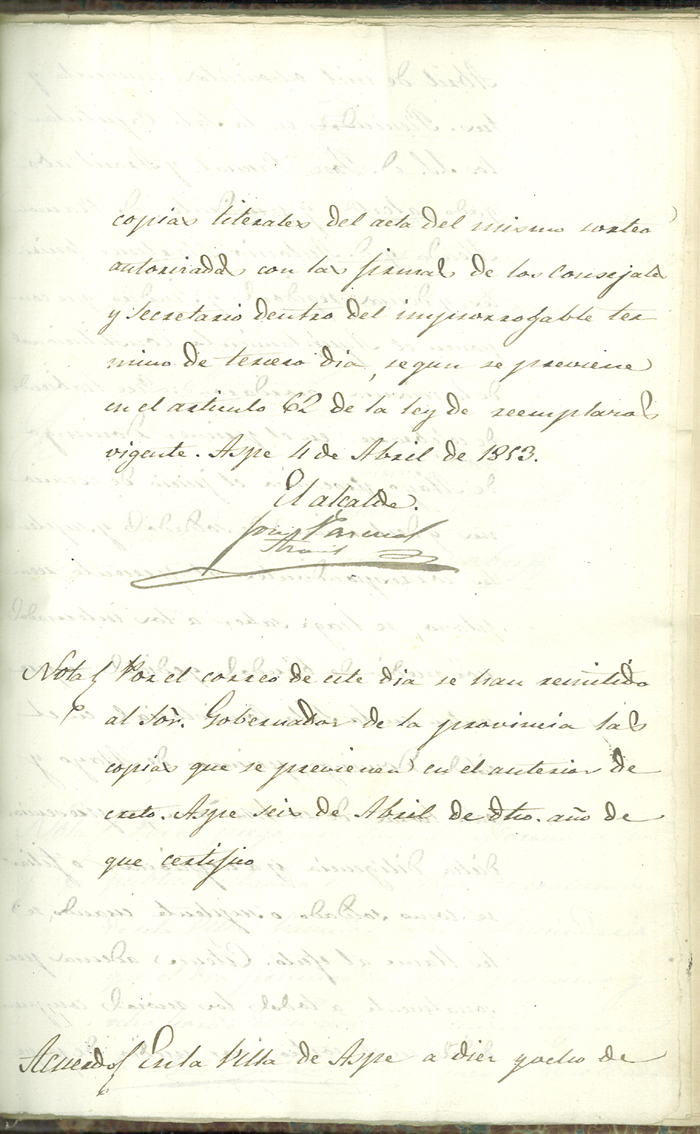 copias literales del acta del mismo sorteo
autorizadas con las firmas de los Consejales
y Secretario dentro del improrrogable ter
mino de tercero dia, segun se previene
en el articulo 62 de la ley de reemplazos
vigente. Aspe 4 de Abril de 1853.
El alcalde.
Pascual
Nota Por el correo de este dia se han remitido
al Sõr. Gobernador de la provincia las
copias que se previenen en el anterior de
creto. Aspe seis de Abril de dho. año de
que certifico
Acuerdo En la Villa de Aspe a diez y ocho de